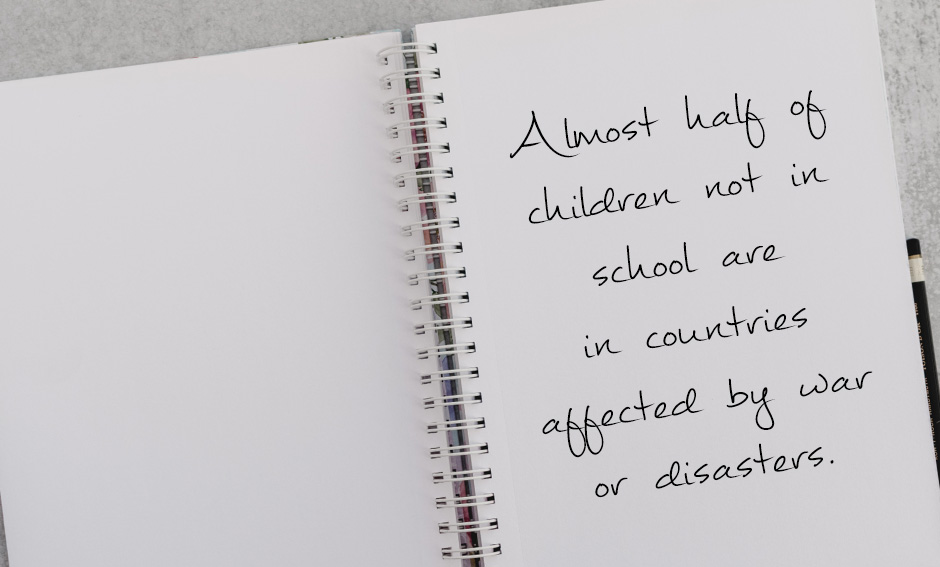 Almost half of
children not in
school are
in countries
affected by war
or disasters.